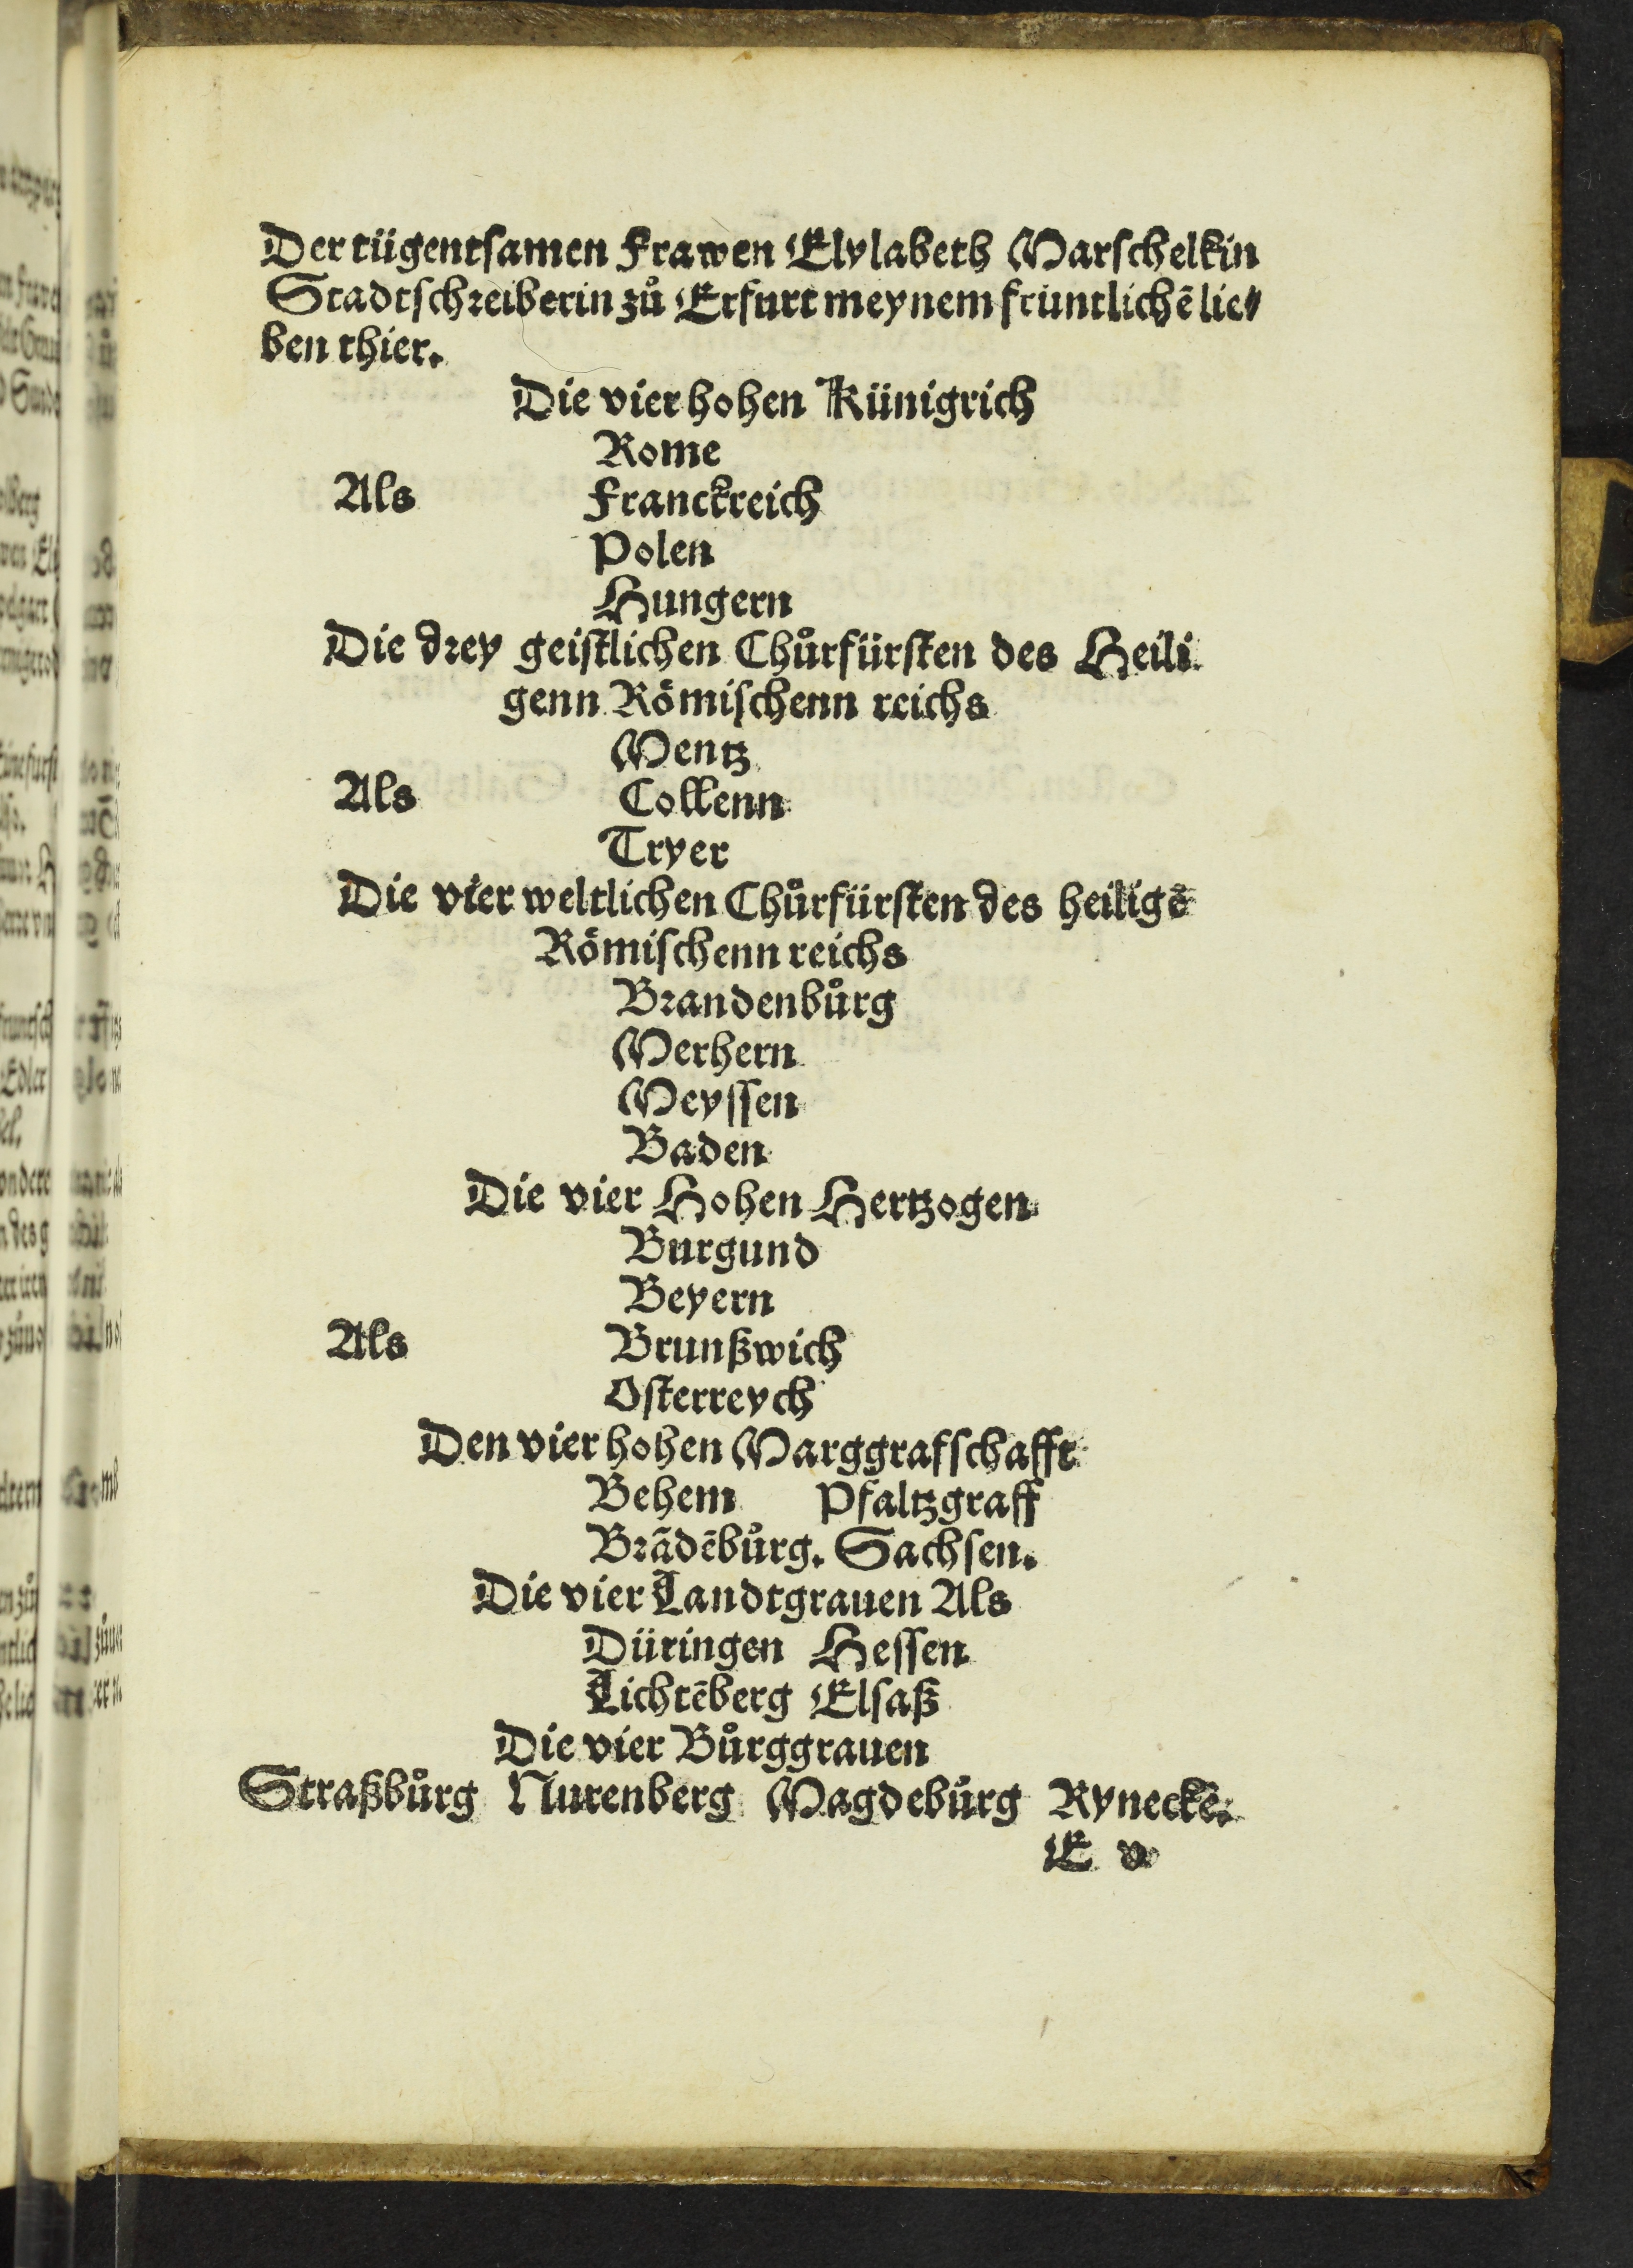 Der tügentsamen Frawen Elylabeth Marschelkin
Stadtschreiberin zů Erfurt meynem früntlichē lie⸗
ben thier.
Die vier hohen Künigrich
Rome
Als Franckreich
Polen
Hungern
Die drey geistlichen Chůrfürsten des Heili
genn Römischenn reichs
Mentz
Als Collenn
Tryer
Die vier weltlichen Chůrfürsten des heiligē
Römischenn reichs
Brandenbůrg
Merhern
Meyssen
Baden
Die vier Hohen Hertzogen
Burgund
Beyern
Als Brunßwich
Osterreych
Den vier hohen Marggrafschafft
Behem Pfaltzgraff
Brādēbůrg. Sachsen.
Die vier Landtgrauen Als
Düringen Hessen
Lichtēberg Elsaß
Die vier Bůrggrauen
Straßbůrg Nurenberg Magdebůrg Ryneckē.
E v